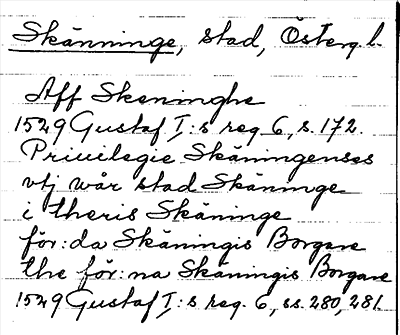 Skänninge, stad, Österg. l.
Aff Skeninghe
1529 Gustaf I:s reg. 6, s. 172.
Priuilegie Skäningenses
vtj wår stad Skäninge
i theris Skäninge
för:da Skäningis Borgare
the för:na Skäningis Borgare
1529 Gustaf I:s reg. 6, ss. 280, 281.